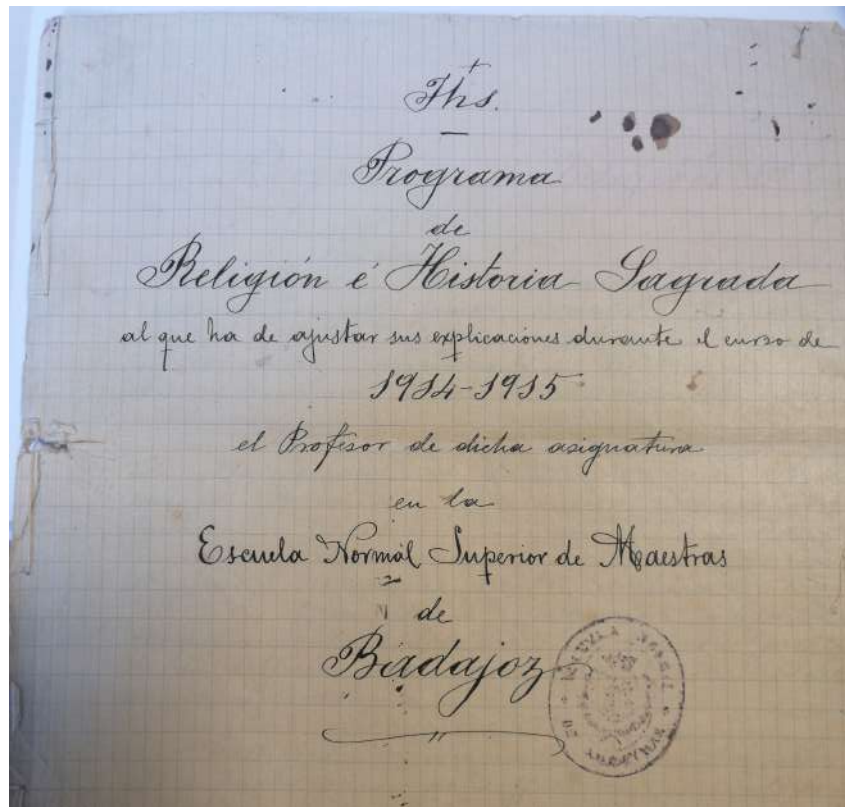 Jhs.
Programa
de
Religión é Historia Sagrada
al que ha de ajustar sus explicaciones durante el curso de
1914-1915
el Profesor de dicha asignatura
en la
Escuela Normal Superior de Maestras
de
Badajoz
ESCUELA NORMAL
DE MAESTRAS